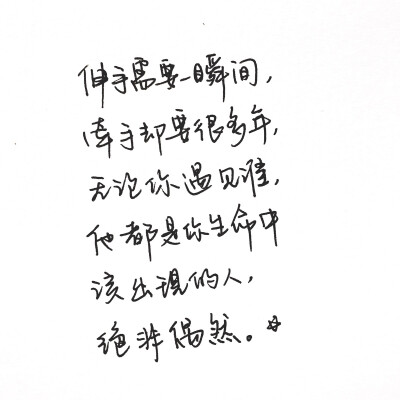 伸手需要一瞬间，
牵手却要很多年，
无论你遇见谁，
他都是你生命中
该出现的人，
绝非偶然。